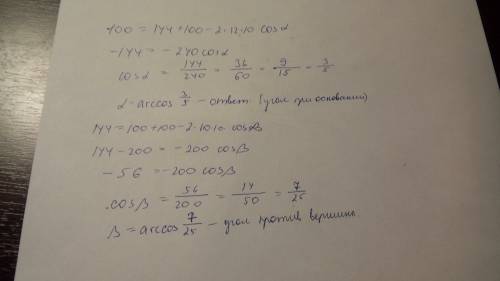 100 = 144 + 100 - 2·12·10 cosα
-144 = -240 cosα
cosα = 144/240 = 36/60 = 9/15 = 3/5
α = arccos 3/5 - ответ (угол при основании)
144 = 100 + 100 - 2·10·10 cosβ
144 - 200 = -200 cosβ
-56 = -200 cosβ
cosβ = 56/200 = 14/50 = 7/25
β = arccos 7/25 - угол против вершины.